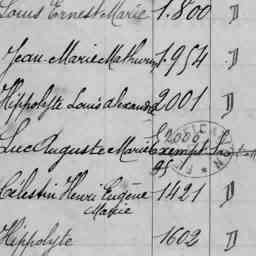 Louis Ernest Marie 1.800 D
Jean Marie Mathurin 1.954 D
Hippolyte Louis Alexandre 2001 D
2000
Luc Auguste Marie Exempt
Célestin Henri Eugène 1421 D
Marie
Hippolyte 1602 D